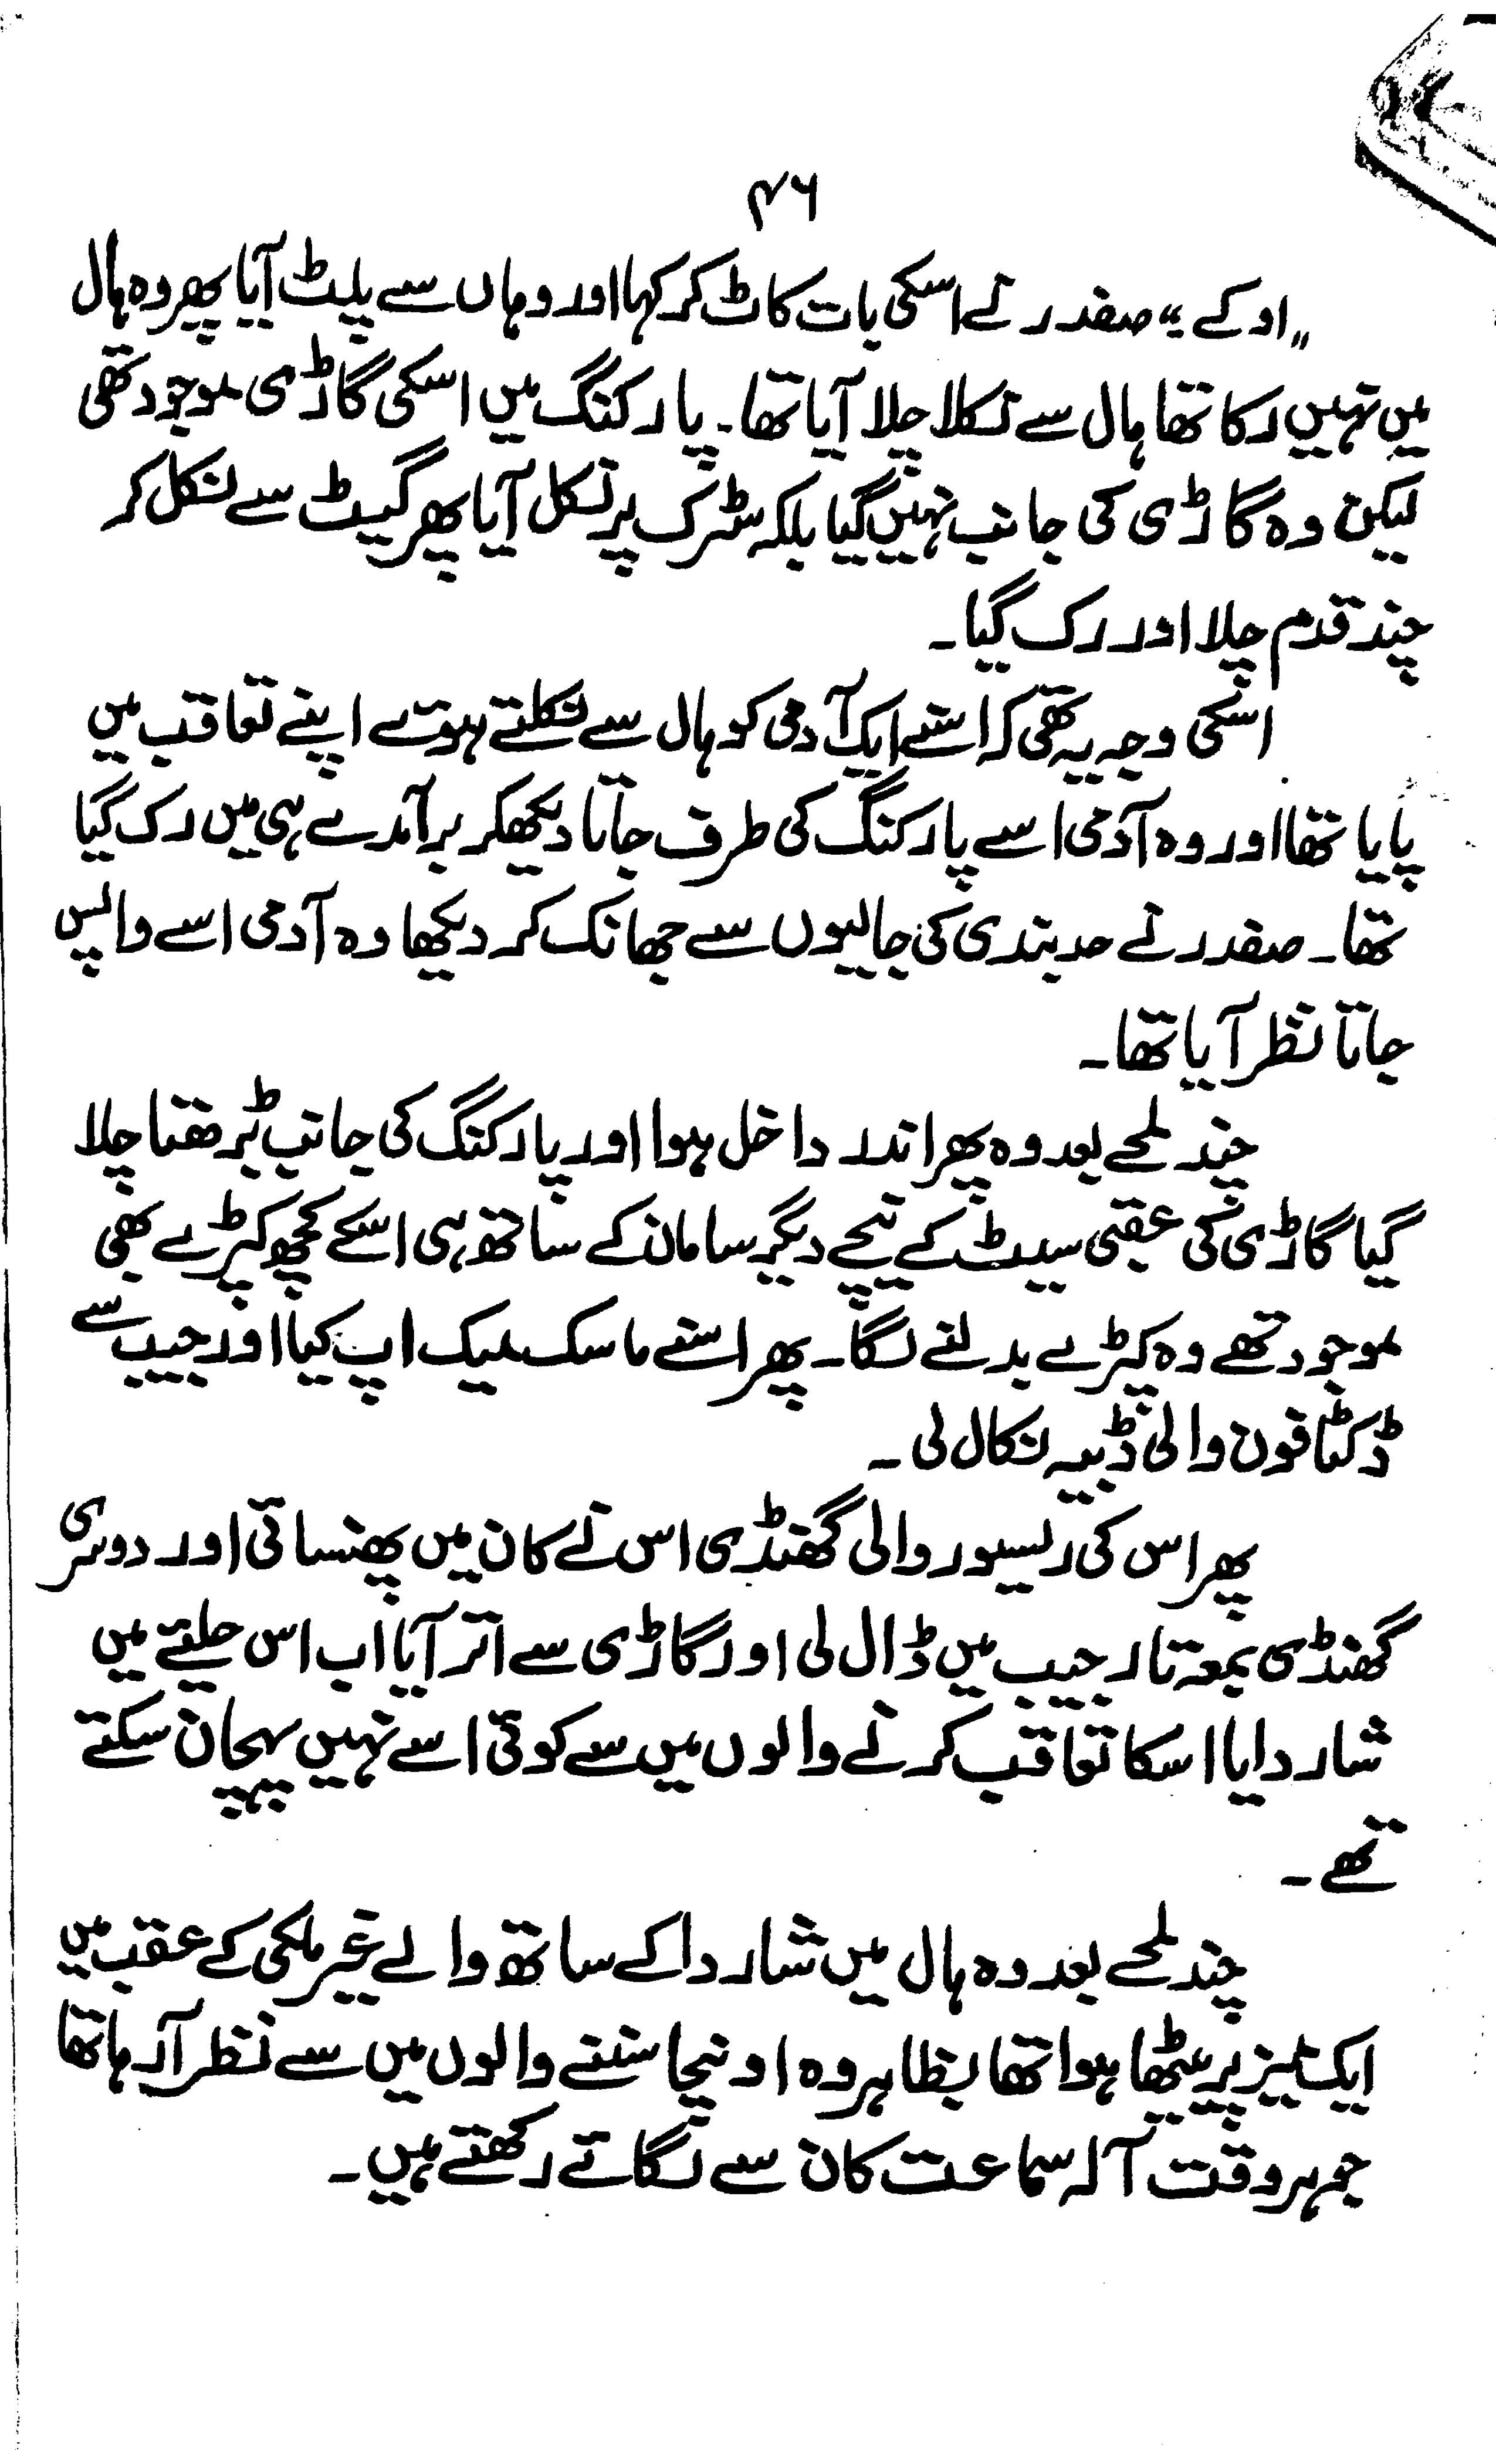 ۴۶
„اوکے“ صفدر نے اسکی بات کاٹ کر کہا اور وہاں سے پلٹ آیا پھر وہ ہال
میں نہیں رکا تھا ہال سے نکلا چلا آیا تھا۔ پارکنگ میں اسکی گاڑی موجود تھی
لیکن وہ گاڑی کی جانب نہیں گیا بلکہ سڑک پر نکل آیا پھر گیٹ سے نکل کر
چند قدم چلا اور رک گیا۔
اسکی وجہ یہ تھی کہ اسنے ایک آدمی کو ہال سے نکلتے ہوتے اپنے تعاقب میں
پایا تھا اور وہ آدمی اسے پارکنگ کی طرف جاتا دیکھکر برآمدے ہی میں رک گیا
تھا۔ صفدر نے حد بندی کی جالیوں سے جھانک کر دیکھا وہ آدمی اسے واپس
جاتا نظر آیا تھا۔
چند لمحے بعد وہ پھر اندر داخل ہوا اور پارکنگ کی جانب بڑھتا چلا
گیا گاڑی کی عقبی سیٹ کے نیچے دیگر سامان کے ساتھ ہی اسکے کچھ کپڑے بھی
موجود تھے وہ کپڑے بدلنے لگا۔ پھر اسنے ماسک میک اپ کیا اور جیب سے
ڈکٹافون والی ڈبیہ نکال لی۔
پھر اس کی ریسیور والی گھنڈی اس نے کان میں پھنسائی اور دوسری
گھنڈی بمعہ تار جیب میں ڈال لی اور گاڑی سے اتر آیا اب اس حلیتے میں
شاردا یا اسکا تعاقب کرنے والوں میں سے کوئی اسے نہیں پہچان سکتے
تھے۔
چند لمحے بعد وہ ہال میں شاردا کے ساتھ والے غیر ملکی کے عقب میں
ایک میز پر بیٹھا ہوا تھا بظاہر وہ اونچا سننے والوں میں سے نظر آرہا تھا
جو ہر وقت آلہ سماعت کان سے لگاتے رکھتے ہیں۔